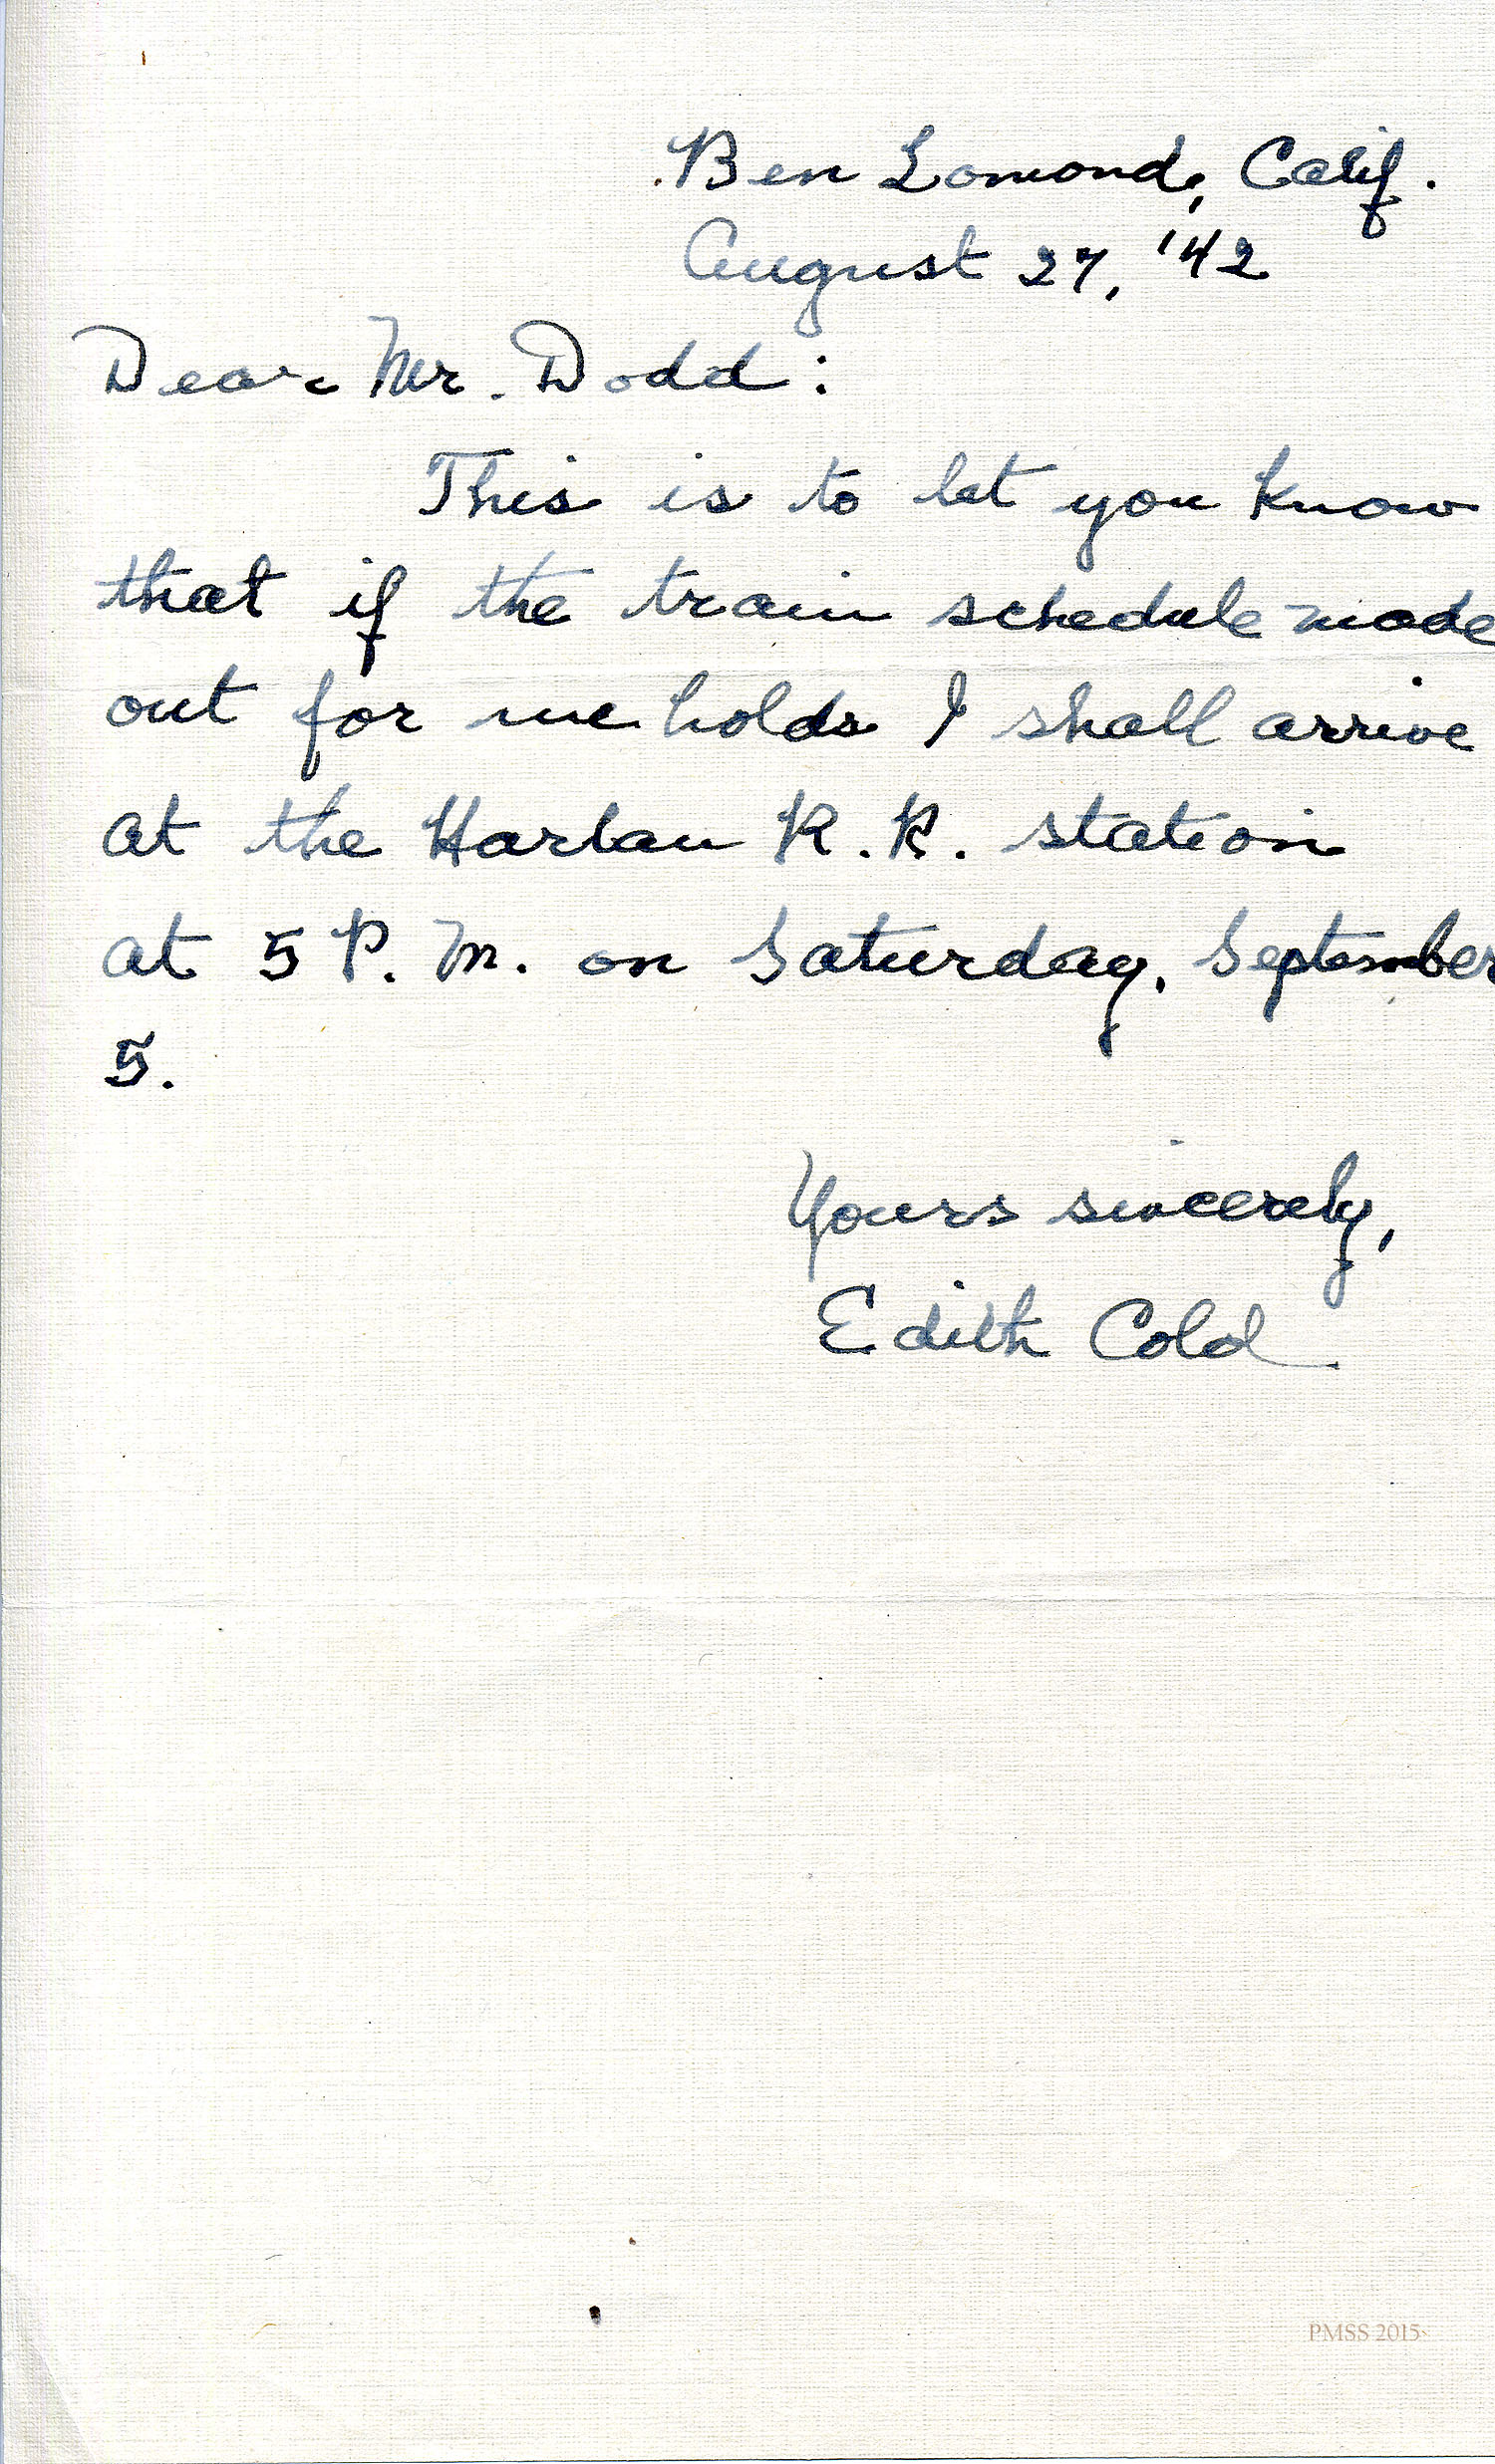 Ben Lomond, Calif.
August 27, '42
Dear Mr. Dodd:
This is to let you know
that if the train schedule made
out for me holds I shall arrive
at the Harlan R.R. station
at 5 P.M. on Saturday, September
5.
Yours sincerely,
Edith Cold
PMSS 2015